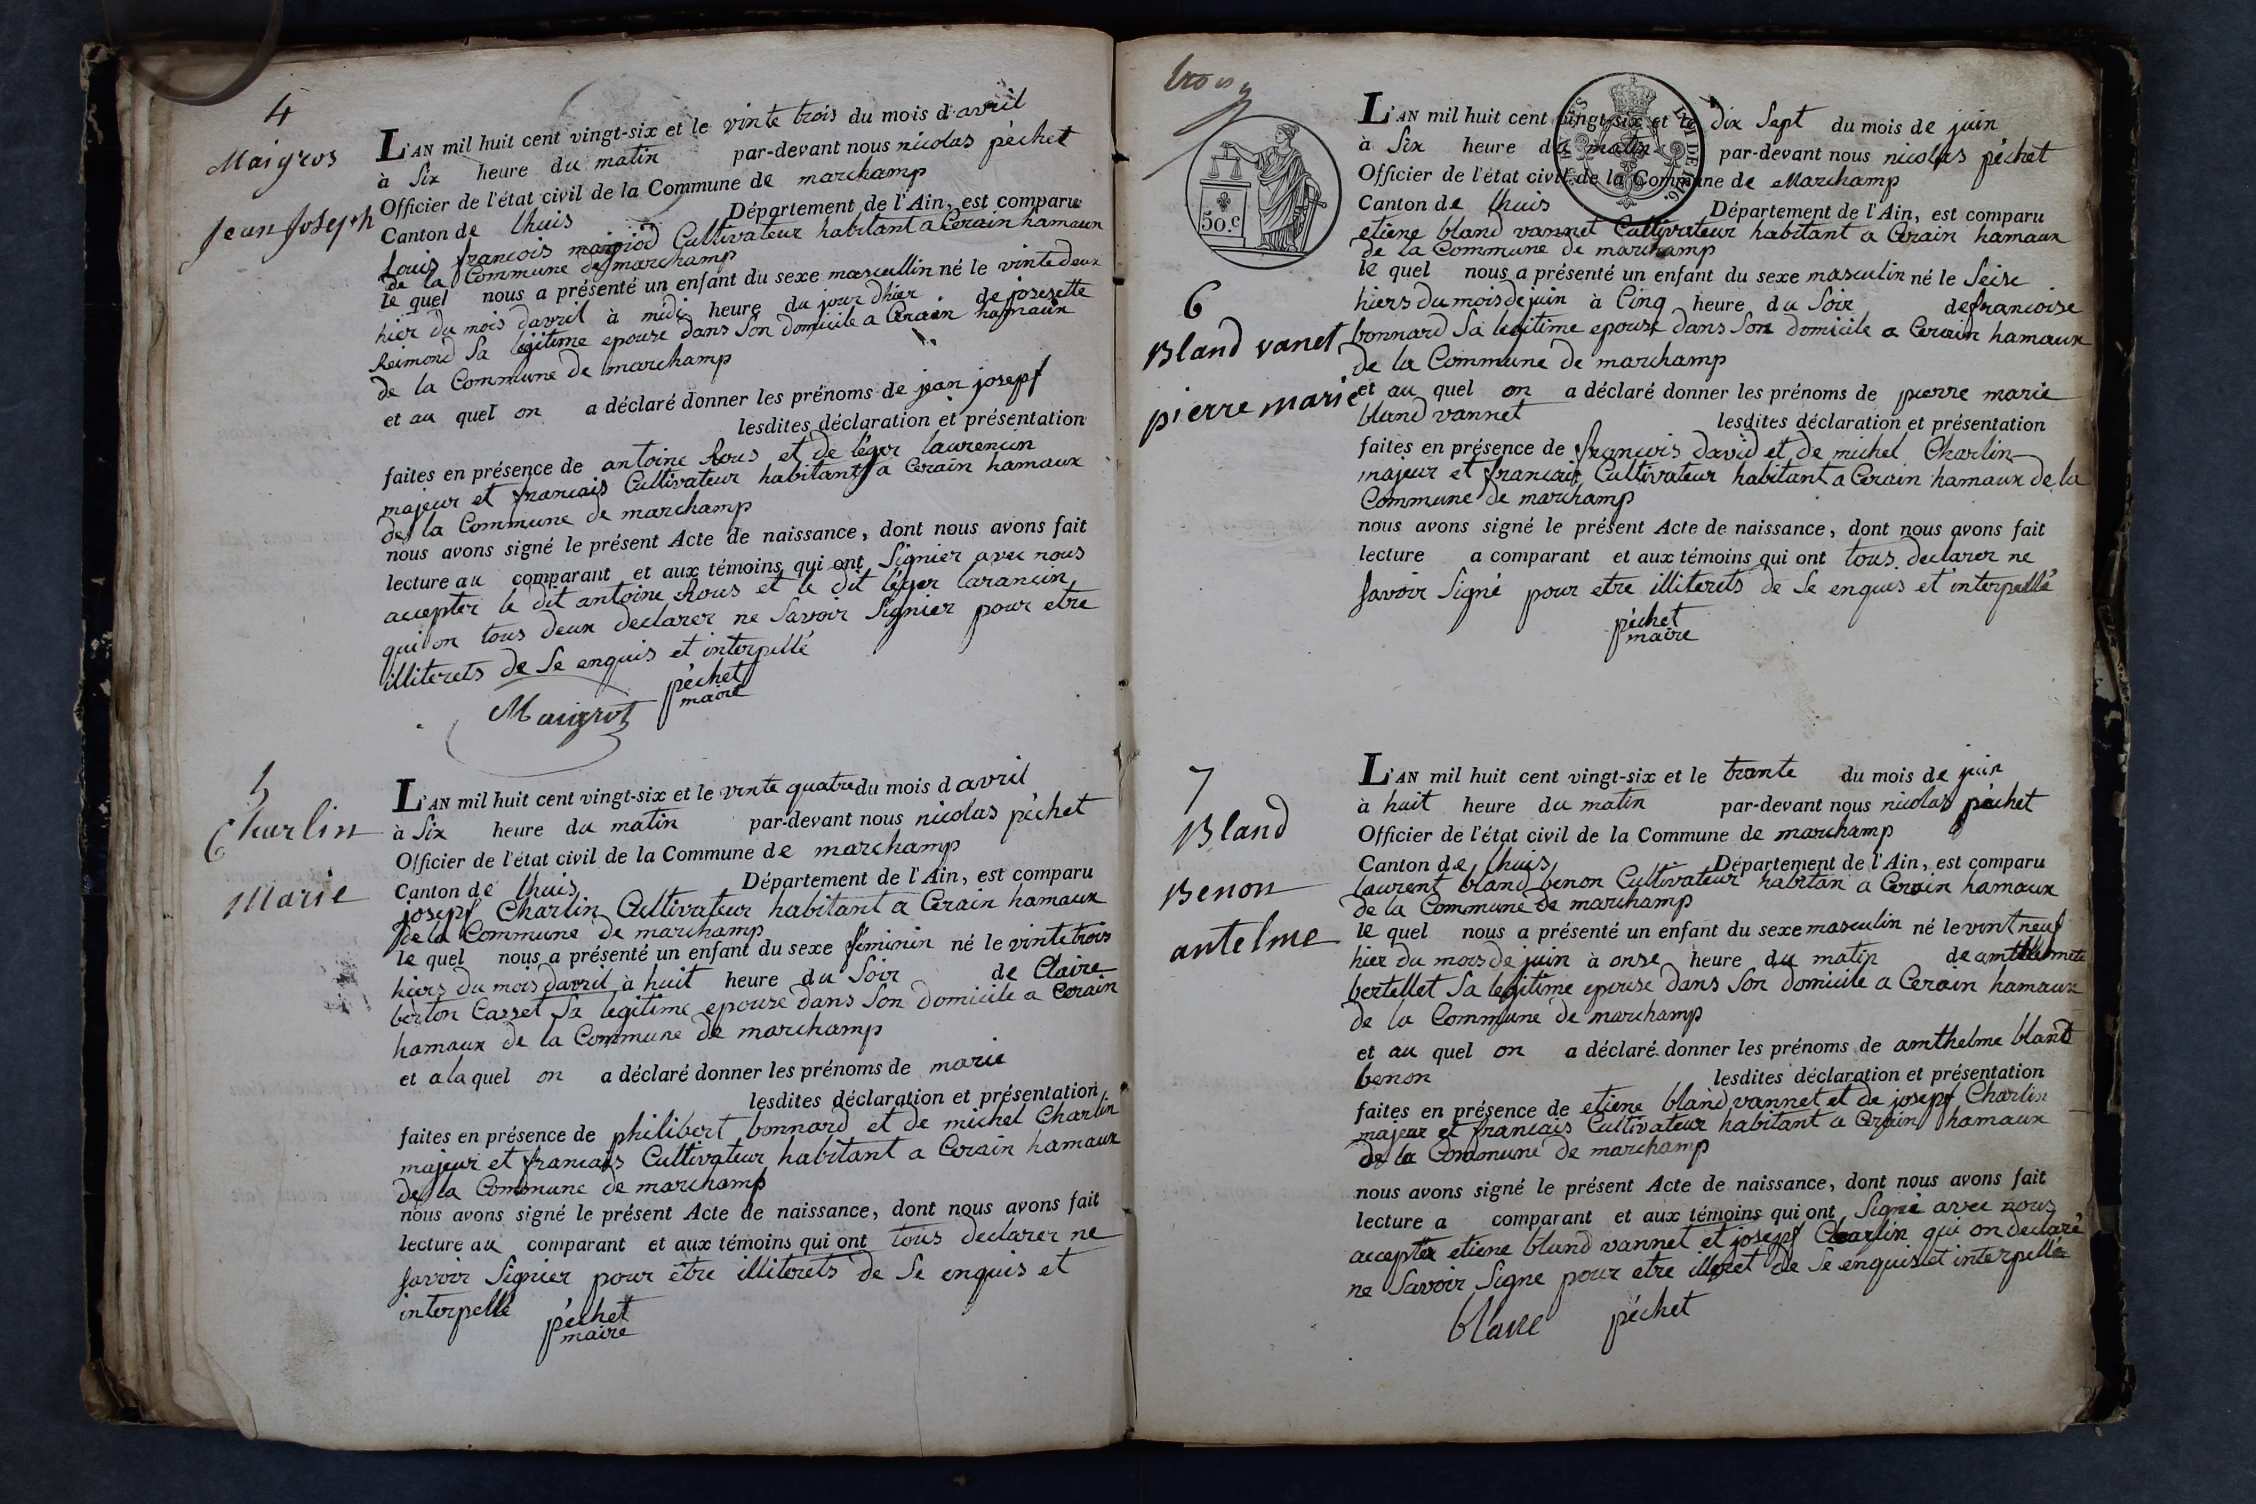 4
Maigros
Jean Joseph
L'AN mil huit cent vingt-six et le vinte trois du mois d'avril
à Six heure du matin par-devant nous nicolas péchet
Officier de l'état civil de la Commune de marchamp
Canton de lhuis Département de l'Ain, est comparu
Louis francois Cultivateur habitant a Cerain hamaux
de la Commune de marchamp
le quel nous a présenté un enfant du sexe mascullin né le vinte deux
hier du mois davril à midi heure du jour dhier de josesette
Reimond Sa legitime epouse dans Son domicile a Cerain hamaux
de la Commune de marchamp
et au quel on a déclaré donner les prénoms de jean josepf
lesdites déclaration et présentation
faites en présence de antoine Rous et de léger laurencin
majeur et francais Cultivateur habitant a Cerain hamaux
de la Commune de marchamp
nous avons signé le présent Acte de naissance, dont nous avons fait
lecture au comparant et aux témoins qui ont Signier avec nous
accepter le dit antoine Rous et le dit léger larancin
qui on tous deux declarer ne Savoir Signier pour etre
illiterets de Se enquis et interpellé
Maigrot péchet
maire
5
Charlin
Marie
L'AN mil huit cent vingt-six et le vinte quatre du mois d avril
à Six heure du matin par-devant nous nicolas péchet
Officier de l'état civil de la Commune de marchamp
Canton de lhuis Département de l'Ain, est comparu
josepf Charlin Cultivateur habitant a Cerain hamaux
de la Commune de marchamp
le quel nous a présenté un enfant du sexe féminin né le vinte trois
hiers du mois davril à huit heure du Soir de Claire
berton Casset Sa legitime epouse dans Son domicile a Cerain
hamaux de la Commune de marchamp
et a la quel on a déclaré donner les prénoms de marie
lesdites déclaration et présentation
faites en présence de philibert bonnard et de michel Charlin
majeur et francais Cultivateur habitant a Cerain hamaux
de la Commune de marchamp
nous avons signé le présent Acte de naissance, dont nous avons fait
lecture au comparant et aux témoins qui ont tous declarer ne
Savoir Signier pour etre illiterets de Se enquis et
interpellé
péchet
maire
trois
50.c
6
Bland vanet
pierre marie
L'AN mil huit cent vingt-six et le dix Sept du mois de juin
à Six heure du matin par-devant nous nicolas péchet
Officier de l'état civil de la Commune de Marchamp
Canton de lhuis Département de l'Ain, est comparu
etiene bland vannet Cultivateur habitant a Cerain hamaux
de la Commune de marchamp
le quel nous a présenté un enfant du sexe masculin né le Seise
hiers du mois de juin à Cinq heure du Soir de francoise
bonnard Sa legitime epouse dans Son domicile a Cerain hamaux
de la Commune de marchamp
et au quel on a déclaré donner les prénoms de pierre marie
bland vannet lesdites déclaration et présentation
faites en présence de françois david et de michel Charlin
majeur et francais Cultivateur habitant a Cerain hamaux de la
Commune de marchamp
nous avons signé le présent Acte de naissance, dont nous avons fait
lecture a comparant et aux témoins qui ont tous declarer ne
Savoir Signé pour etre illiterets de Se enquis et interpellé
péchet
maire
7
Bland
Benon
antelme
L'AN mil huit cent vingt-six et le trante du mois de juin
à huit heure du matin par-devant nous nicolas péchet
Officier de l'état civil de la Commune de marchamp
Canton de lhuis Département de l'Ain, est comparu
laurent bland benon Cultivateur habitan a Cerain hamaux
de la Commune de marchamp
le quel nous a présenté un enfant du sexe masculin né le vint neuf
hier du mois de juin à onse heure du matin de
bertellet Sa legitime epouse dans Son domicile a Cerain hamaux
de la Commune de marchamp
et au quel on a déclaré donner les prénoms de amthelme bland
benon lesdites déclaration et présentation
faites en présence de etiene bland vannet et de josepf Charlin
majeur et francais Cultivateur habitant a Cerain hamaux
de la Commune de marchamp
nous avons signé le présent Acte de naissance, dont nous avons fait
lecture a comparant et aux témoins qui ont Signé avec nous
accepter etiene bland vannet et josepf Charlin qui on declaré
ne Savoir Signe pour etre illeret de Se enquis et interpellé
blanc péchet